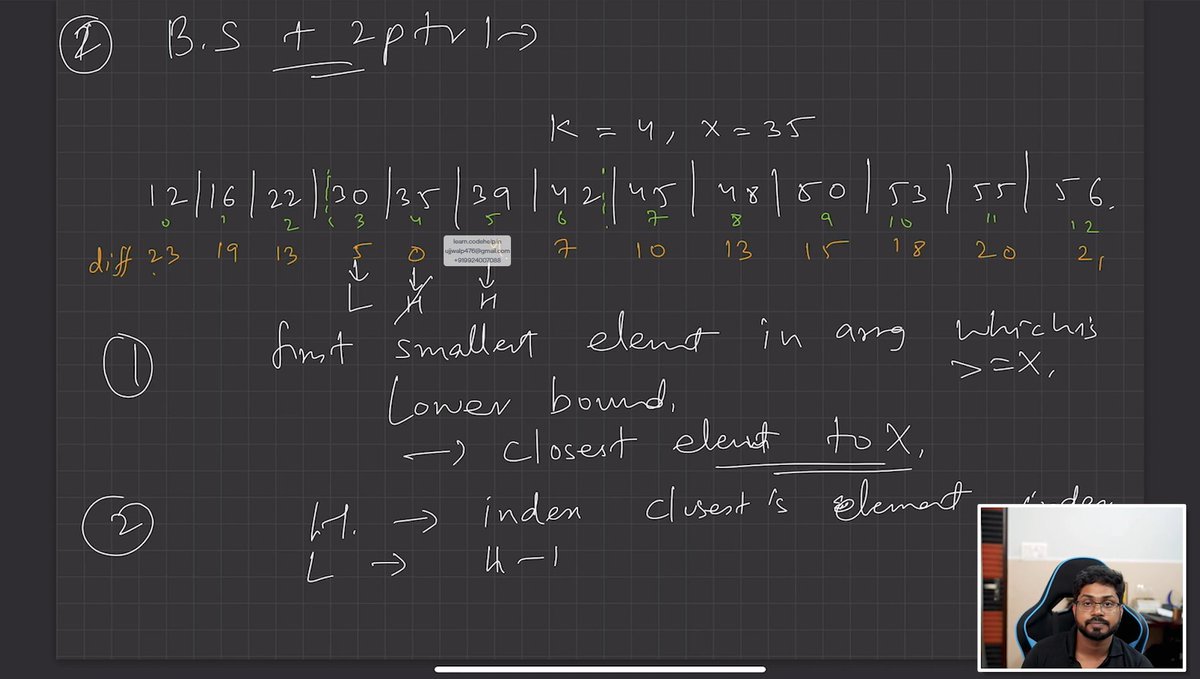 ② B.S + 2ptr |→
K = 4, X = 35
12 | 16 | 22 | 30 | 35 | 39 | 42 | 45 | 48 | 50 | 53 | 55 | 56.
0 1 2 3 4 5 6 7 8 9 10 11 12
diff 23 19 13 5 0 7 10 13 15 18 20 21
learn.codehelp.in
ujjwalp476@gmail.com
+919924007088
L H H
① first smallest elemnt in array which is
>=X.
Lower bound.
→ closest elemnt to X.
② H. → index closest is element index
L → H-1